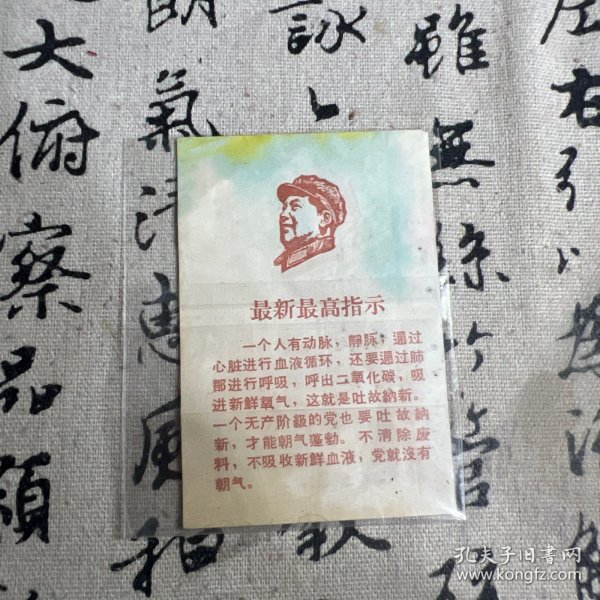 最新最高指示
一个人有动脉，静脉，通过
心脏进行血液循环，还要通过肺
部进行呼吸，呼出二氧化碳，吸
进新鲜氧气，这就是吐故納新。
一个无产阶級的党也要吐故納
新，才能朝气蓬勃。不清除废
料，不吸收新鲜血液，党就沒有
朝气。
大俯察品類
朗氣清惠風和
詠
雖無絲竹管
左右引
孔夫子旧书网
www.kongfz.com